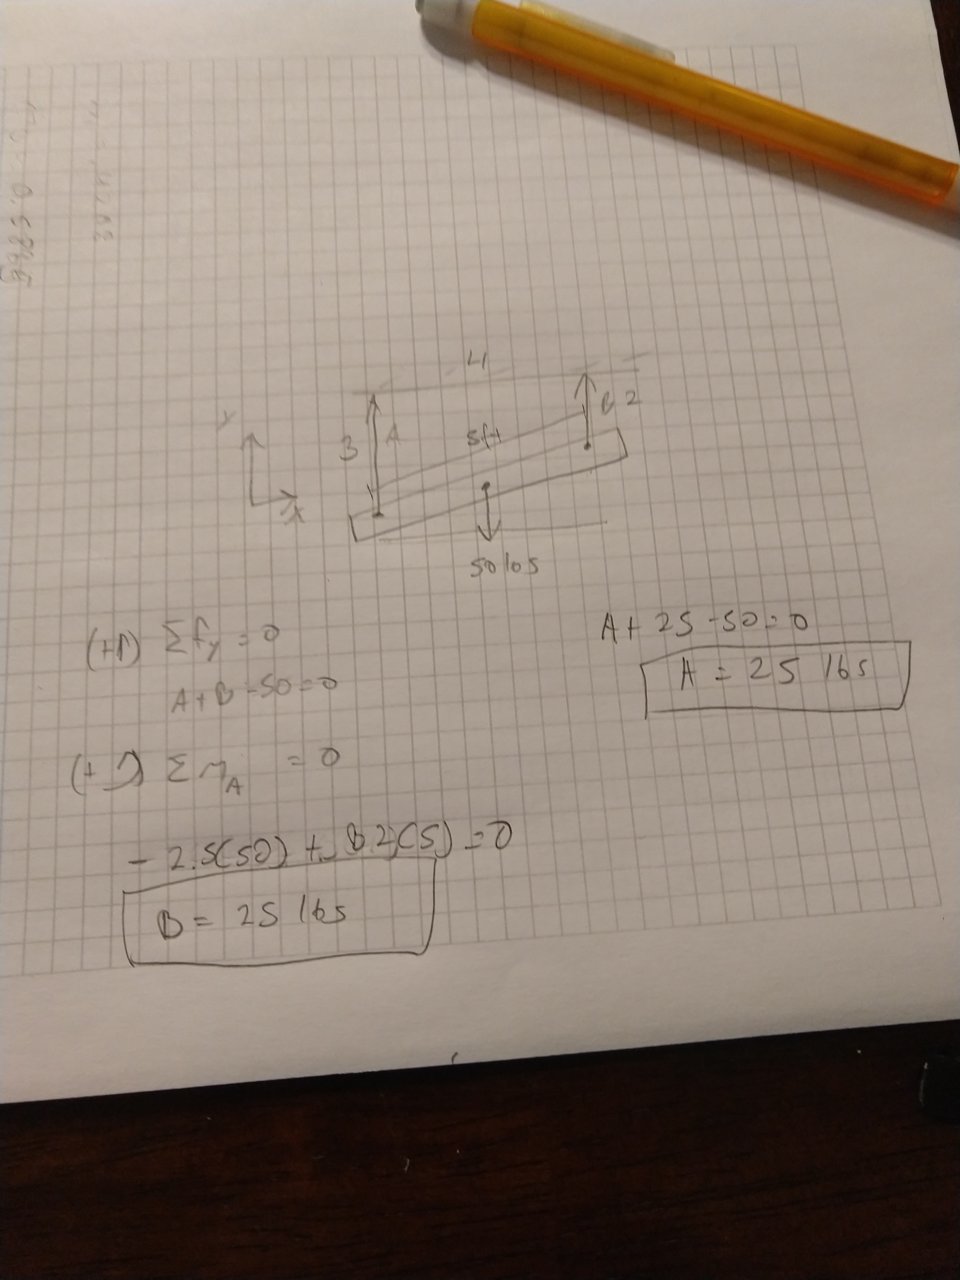 4
Y
3
A
5ft
B 2
X
50 lbs
(+↑) Σfy = 0
A+B-50=0
(+↺) ΣMA = 0
-2.5(50) + B2(5) = 0
B = 25 lbs
A + 25 -50 = 0
A = 25 lbs